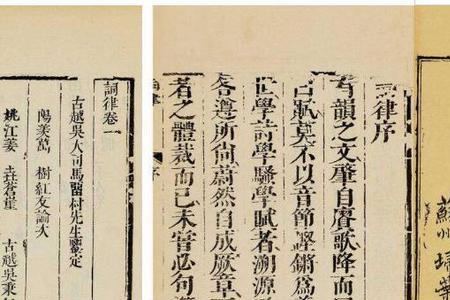 蘇州掃葉
詞律序
有韻之文肇自賡歌降而
古賦莫不以音節鏗鏘爲
世學詩學騷學賦者溯源
各遵所尚蔚然自成厥章
者之體裁而已未嘗必句
詞律卷一
古越吳大司馬畱村先生鑒定
陽羨萬 樹紅友論次
姚江姜 垚蒼崖 古越吳秉